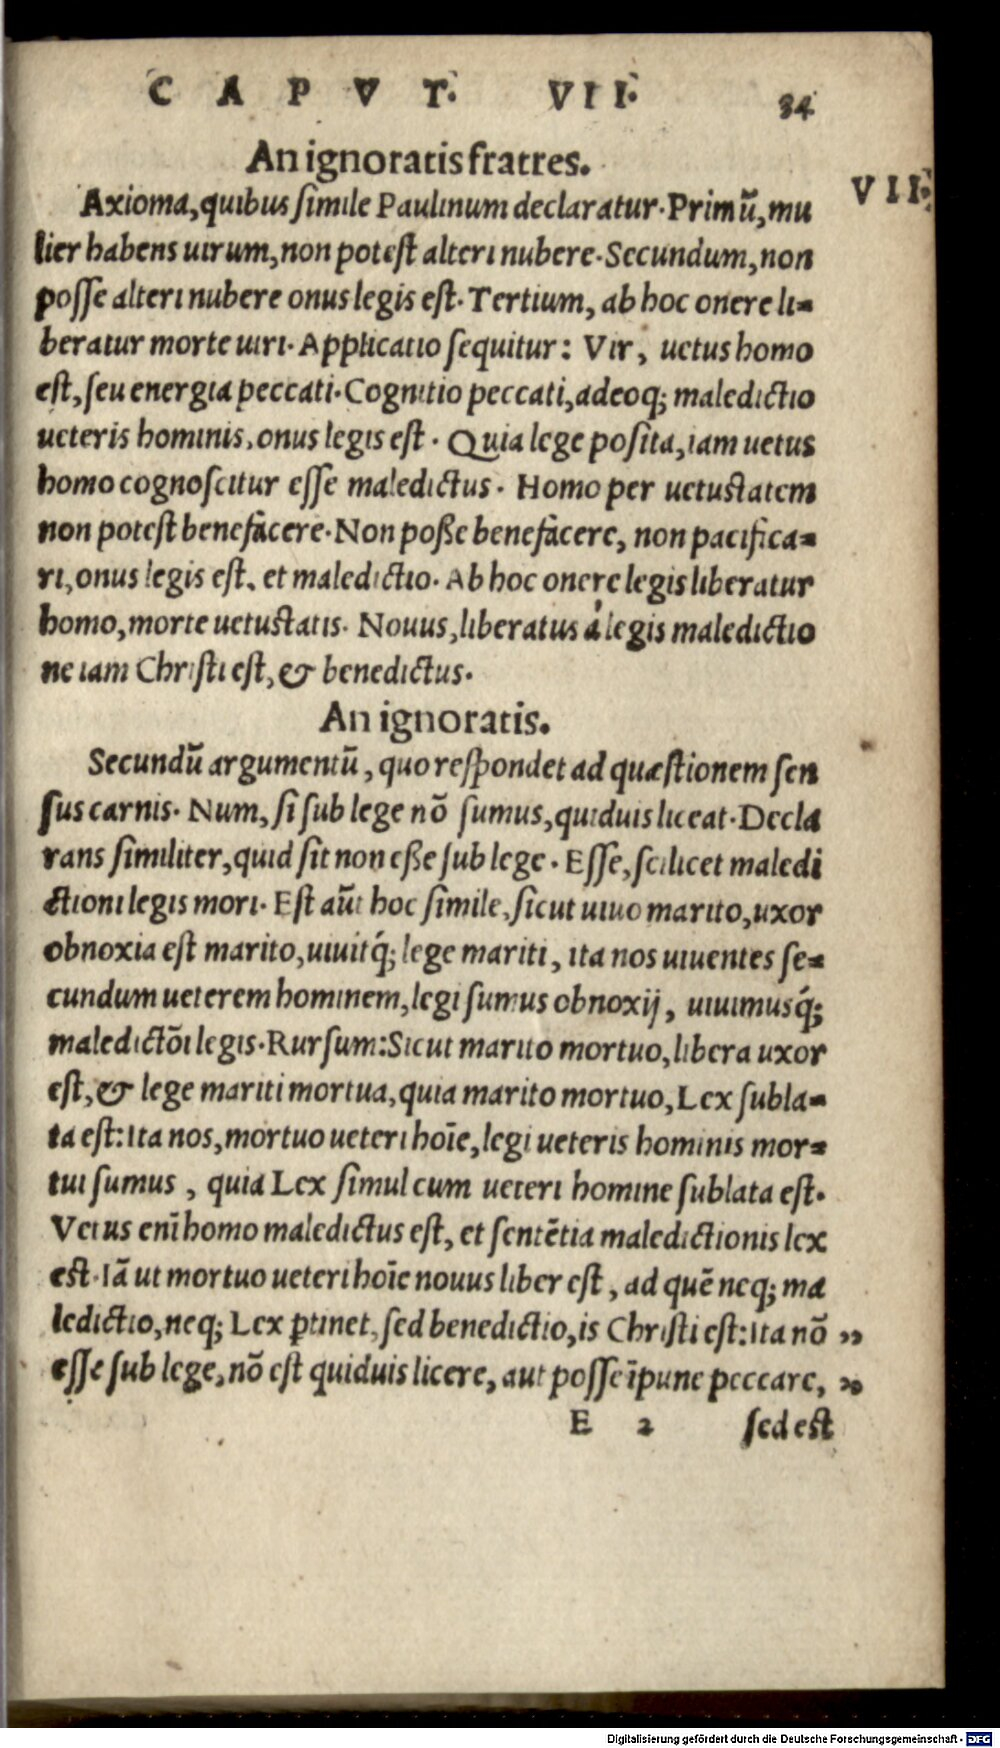 CAPVT. VII. 34
An ignoratis fratres.
VII.
Axioma, quibus simile Paulinum declaratur. Primũ, mu
lier habens uirum, non potest alteri nubere. Secundum, non
posse alteri nubere onus legis est. Tertium, ab hoc onere li-
beratur morte uiri. Applicatio sequitur: Vir, uetus homo
est, seu energia peccati. Cognitio peccati, adeoq; maledictio
ueteris hominis, onus legis est. Quia lege posita, iam uetus
homo cognoscitur esse maledictus. Homo per uetustatem
non potest benefacere. Non poße benefacere, non pacifica-
ri, onus legis est. et maledictio. Ab hoc onere legis liberatur
homo, morte uetustatis. Nouus, liberatus á legis maledictio
ne iam Christi est, & benedictus.
An ignoratis.
Secundũ argumentũ, quo respondet ad quæstionem sen
sus carnis. Num, si sub lege nõ sumus, quiduis liceat. Decla
rans similiter, quid sit non eße sub lege. Esse, scilicet maledi
ctioni legis mori. Est aũt hoc simile, sicut uiuo marito, uxor
obnoxia est marito, uiuitq́; lege mariti, ita nos uiuentes se-
cundum ueterem hominem, legi sumus obnoxij, uiuimusq́;
maledictõi legis. Rursum: Sicut marito mortuo, libera uxor
est, & lege mariti mortua, quia marito mortuo, Lex subla-
ta est: Ita nos, mortuo ueteri hoĩe, legi ueteris hominis mor-
tui sumus, quia Lex simul cum ueteri homine sublata est.
Vetus enĩ homo maledictus est, et sentẽtia maledictionis lex
est. Iã ut mortuo ueteri hoĩe nouus liber est, ad quẽ neq; ma
ledictio, neq; Lex ꝑtinet, sed benedictio, is Christi est: Ita nõ „
esse sub lege, nõ est quiduis licere, aut posse ĩpune peccare, „
E 2 sed est
Digitalisierung gefördert durch die Deutsche Forschungsgemeinschaft - DFG